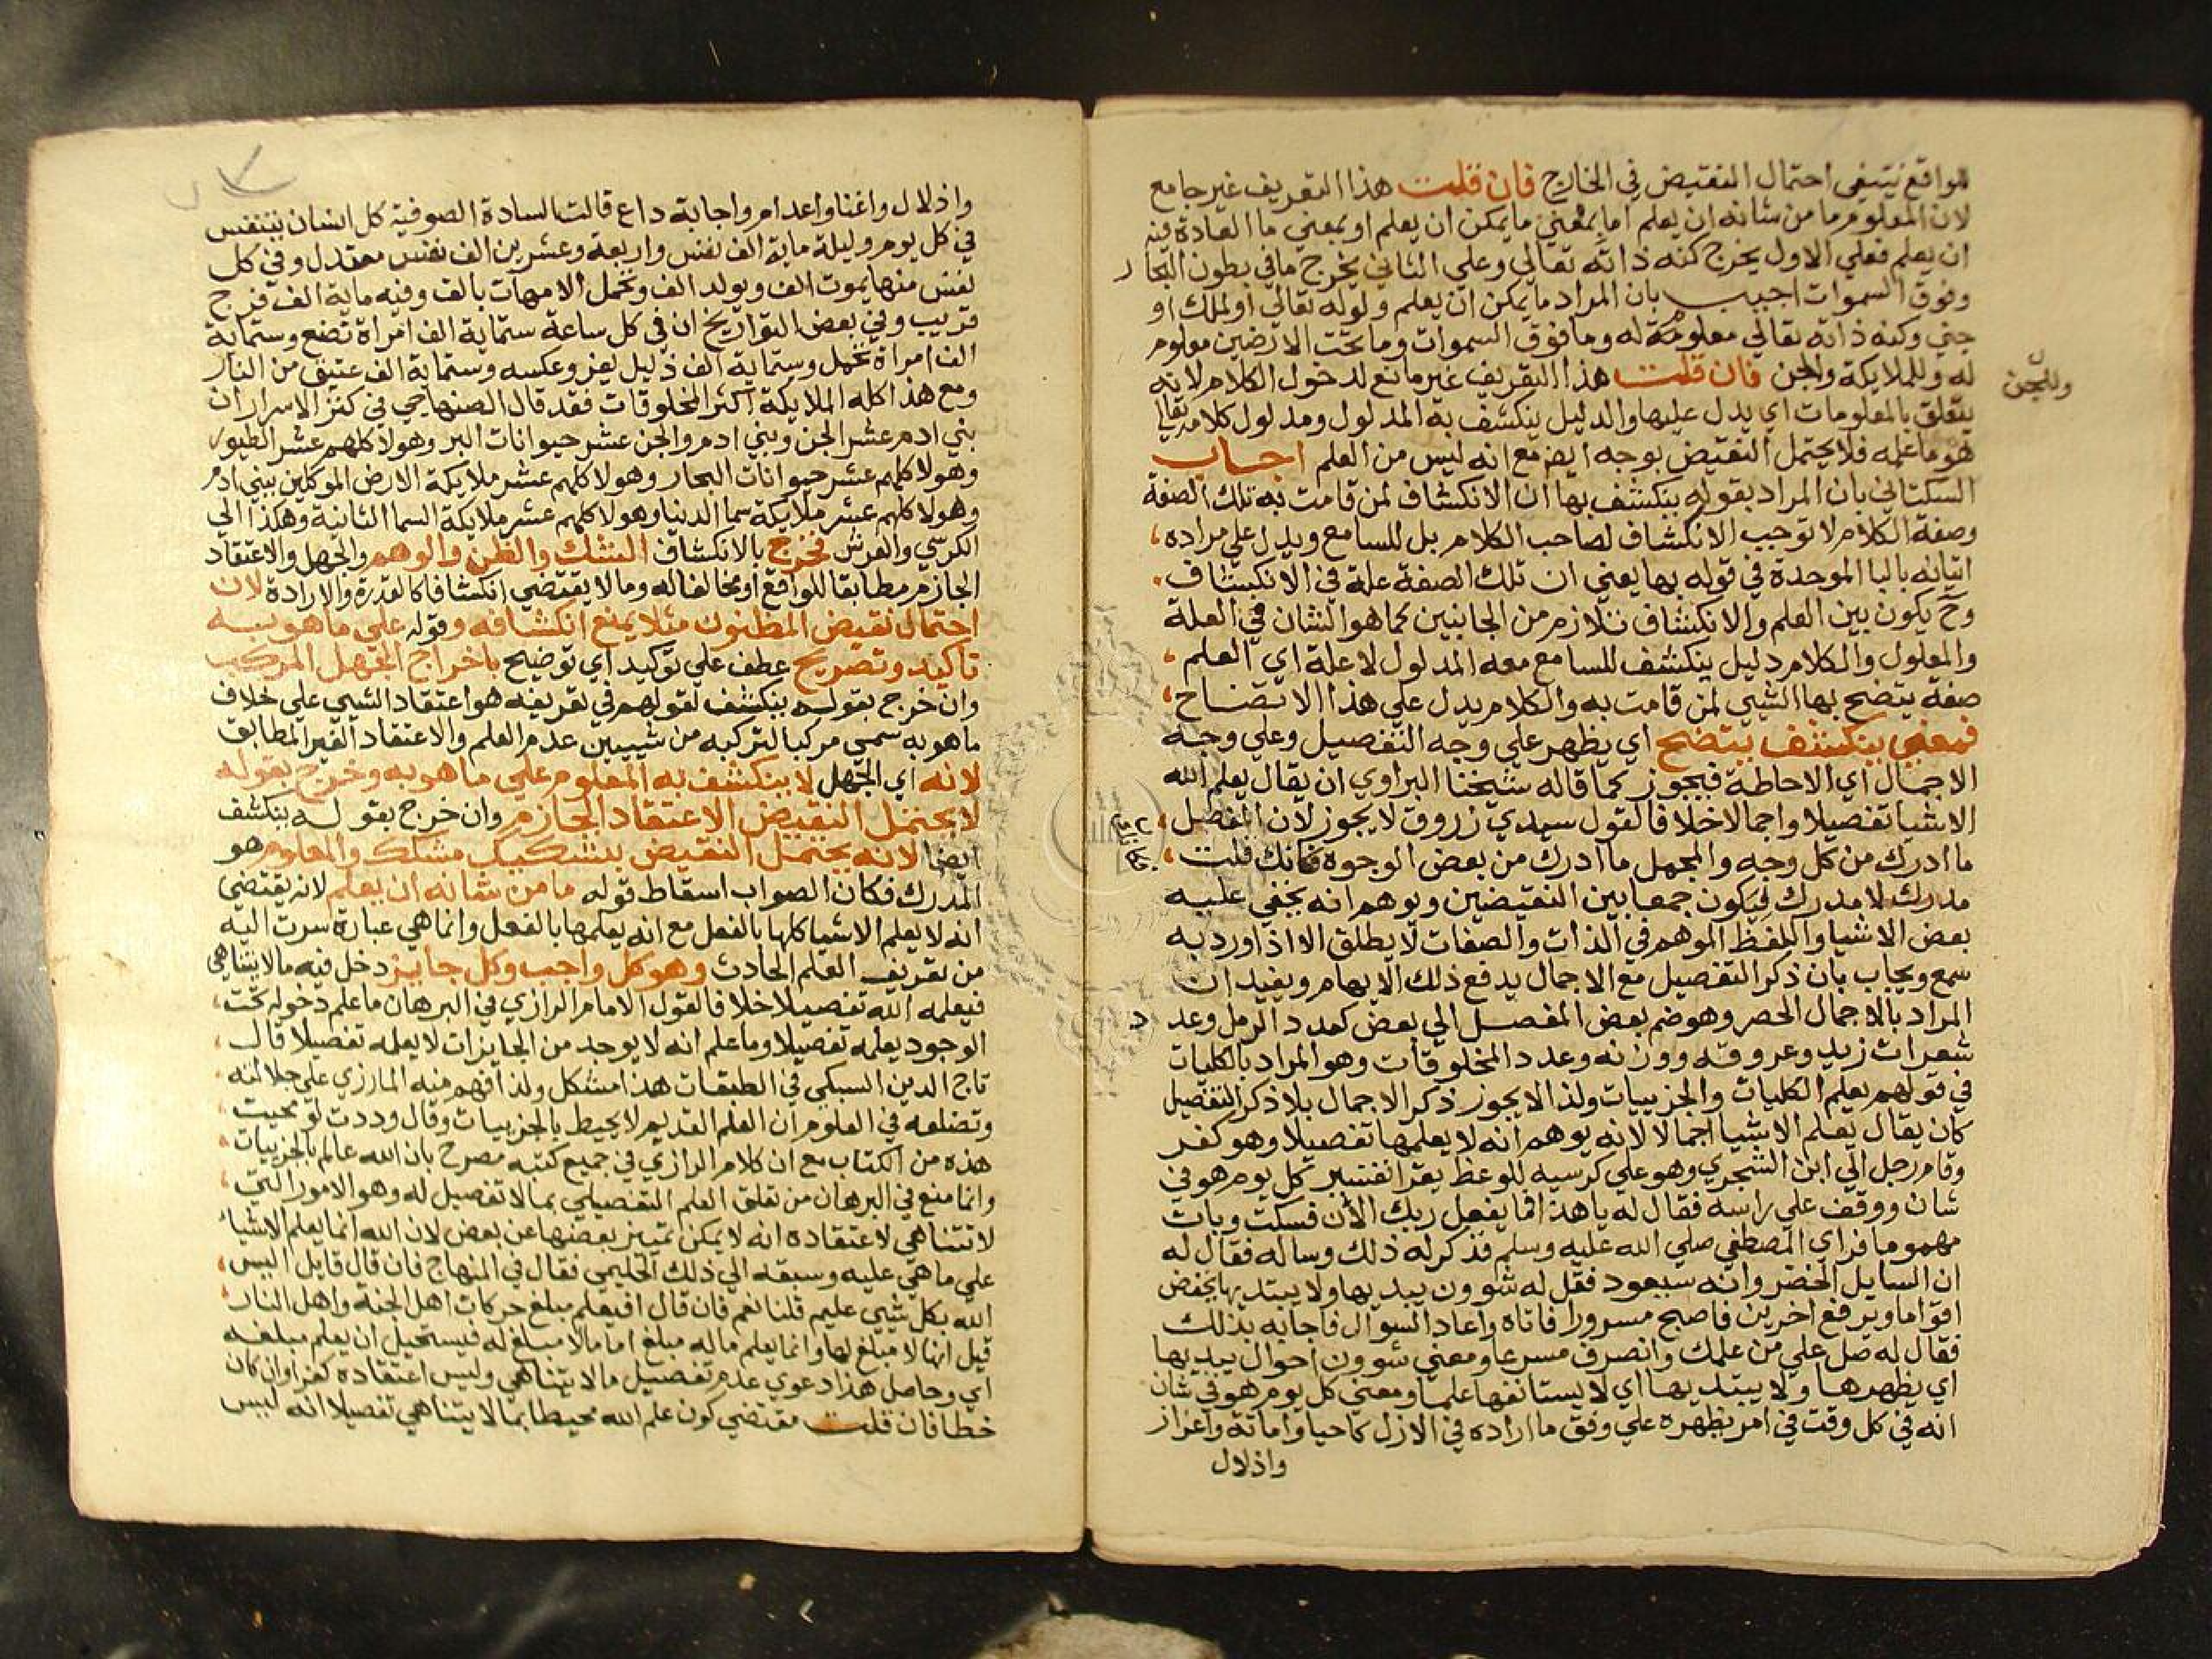 للواقع فينتفي احتمال النقيض في الخارج فان قلت هذا التعريف غير جامع
لان المعلوم ما من شانه ان يعلم اما بمعني ما يمكن ان يعلم او بمعني ما العادة فيه
ان يعلم فعلي الاول يخرج كنه ذاته تعالي وعلي الثاني يخرج ما في بطون البحار
وفوق السموات اجيب بان المراد ما يمكن ان يعلم ولو له تعالي او لملك او
جني وكنه ذاته تعالي معلومة له وما فوق السموات وما تحت الارضين معلوم
له وللملايكة والجن فان قلت هذا التعريف غير مانع لدخول الكلام لانه
وللجن
يتعلق بالمعلومات اي يدل عليها والدليل ينكشف به المدلول ومدلول كلامه تعالي
هو ما علمه فلا يحتمل النقيض بوجه ايض مع انه ليس من العلم اجاب
السكتاني بان المراد بقوله ينكشف بها ان الانكشاف لمن قامت به تلك الصفة
وصفة الكلام لا توجب الانكشاف لصاحب الكلام بل للسامع ويدل علي مراده
اتيانه بالبا الموحدة في قوله بها يعني ان تلك الصفة علة في الانكشاف
وح يكون بين العلم والانكشاف تلازم من الجانبين كما هو الشان في العلة
والمعلول والكلام دليل ينكشف للسامع معه المدلول لا علة اي العلم
صفة يتضح بها الشيي لمن قامت به والكلام يدل علي هذا الاتضاح
فمعني ينكشف يتضح اي يظهر علي وجه التفصيل وعلي وجه
الاجمال اي الاحاطة فيجوز كما قاله شيخنا البراوي ان يقال يعلم الله
الاشيا تفصيلا واجمالا خلافا لقول سيدي زروق لا يجوز لان المفصل
ما ادرك من كل وجه والمجمل ما ادرك من بعض الوجوه فكانك قلت
مدرك لا مدرك فيكون جمعا بين النقيضين ويوهم انه يخفي عليه
بعض الاشيا واللفظ الموهم في الذات والصفات لا يطلق الا اذا ورد به
سمع ويجاب بان ذكر التفصيل مع الاجمال يدفع ذلك الايهام ويفيد ان
المراد بالاجمال الحصر وهو ضم بعض المفصل الي بعض كعدد الرمل وعدد
شعرات زيد وعروقه ووزنه وعدد المخلوقات وهو المراد بالكليات
في قولهم يعلم الكليات والجزييات ولذا لا يجوز ذكر الاجمال بلا ذكر التفصيل
كان يقال يعلم الاشيا اجمالا لانه يوهم انه لا يعلمها تفصيلا وهو كفر
وقام رجل الي ابن الشجري وهو علي كرسيه للوعظ يقرا تفسير كل يوم هو في
شان ووقف علي راسه فقال له يا هذا فما يفعل ربك الان فسكت وبات
مهموما فراي المصطفي صلي الله عليه وسلم فذكر له ذلك وساله فقال له
ان السايل الخضر وانه سيعود فقل له شوون يبديها ولا يبتديها يخفض
اقواما ويرفع اخرين فاصبح مسرورا فاتاه واعاد السوال فاجابه بذلك
فقال له صل علي من علمك وانصرف مسرعا ومعني شوون احوال يبديها
اي يظهرها ولا يبتديها اي لا يستانفها علما ومعني كل يوم هو في شان
انه في كل وقت في امر يظهره علي وفق ما اراده في الازل كاحيا واماتة واعزاز
واذلال
واذلال واغنا واعدام واجابة داع قالت السادة الصوفية كل انسان يتنفس
في كل يوم وليلة ماية الف نفس واربعة وعشرين الف نفس معتدل وفي كل
نفس منها يموت الف ويولد الف وتحمل الامهات بالف وفيه ماية الف فرج
قريب وفي بعض التواريخ ان في كل ساعة ستماية الف امراة تضع وستماية
الف امراة تحمل وستماية الف ذليل يعز وعكسه وستماية الف عتيق من النار
ومع هذا كله الملايكة اكثر المخلوقات فقد قال الصنهاجي في كنز الاسرار ان
بني ادم عشر الجن وبني ادم والجن عشر حيوانات البر وهولا كلهم عشر الطيور
وهولا كلهم عشر حيوانات البحار وهولا كلهم عشر ملايكة الارض الموكلين ببني ادم
وهولا كلهم عشر ملايكة سما الدنيا وهولا كلهم عشر ملايكة السما الثانية وهكذا الي
الكرسي والعرش فخرج بالانكشاف الشك والظن والوهم والجهل والاعتقاد
الجازم مطابقا للواقع او مخالفا له وما لا يقتضي انكشافا كالقدرة والارادة لان
احتمال نقيض المظنون مثلا يمنع انكشافه وقوله علي ما هو به
تاكيد وتصريح عطف علي توكيد اي توضيح باخراج الجهل المركب
وان خرج بقوله ينكشف لقولهم في تعريفه هو اعتقاد الشيي علي خلاف
ما هو به سمي مركبا لتركبه من شييين عدم العلم والاعتقاد الغير المطابق
لانه اي الجهل لا ينكشف به المعلوم علي ما هو به وخرج بقوله
لا يحتمل النقيض الاعتقاد الجازم وان خرج بقوله ينكشف
ايضا لانه يحتمل النقيض بتشكيك مشكك والمعلوم هو
المدرك فكان الصواب اسقاط قوله ما من شانه ان يعلم لانه يقتضي
انه لا يعلم الاشيا كلها بالفعل مع انه يعلمها بالفعل وانما هي عبارة سرت اليه
من تعريف العلم الحادث وهو كل واجب وكل جايز دخل فيه ما لا يتناهي
فيعلمه الله تفصيلا خلافا لقول الامام الرازي في البرهان ما علم دخوله تحت
الوجود يعلمه تفصيلا وما علم انه لا يوجد من الجايزات لا يعلمه تفصيلا قال
تاج الدين السبكي في الطبقات هذا مشكل ولذا فهم منه المارزي علي جلالته
وتضلعه في العلوم ان العلم القديم لا يحيط بالجزييات وقال وددت لو محيت
هذه من الكتاب مع ان كلام الرازي في جميع كتبه مصرح بان الله عالم بالجزييات
وانما منع في البرهان من تعلق العلم التفصيلي بما لا تفصيل له وهو الامور التي
لا تتناهي لاعتقاده انه لا يمكن تمييز بعضها عن بعض لان الله انما يعلم الاشياء
علي ما هي عليه وسبقه الي ذلك الحليمي فقال في المنهاج فان قال قايل اليس
الله بكل شيي عليم قلنا نعم فان قال افيعلم مبلغ حركات اهل الجنة واهل النار
قيل انها لا مبلغ لها وانما يعلم ما له مبلغ اما ما لا مبلغ له فيستحيل ان يعلم مبلغه
اي وحاصل هذا دعوي عدم تفصيل ما لا يتناهي وليس اعتقاده كفرا وان كان
خطا فان قلت مقتضي كون علم الله محيطا بما لا يتناهي تفصيلا انه ليس